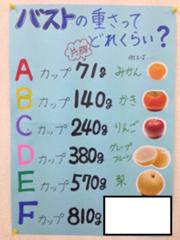 バストの重さって
どれくらい?
片胸
Aカップ 71g みかん
Bカップ 140g かき
Cカップ 240g りんご
Dカップ 380g グレープフルーツ
Eカップ 570g 梨
Fカップ 810g